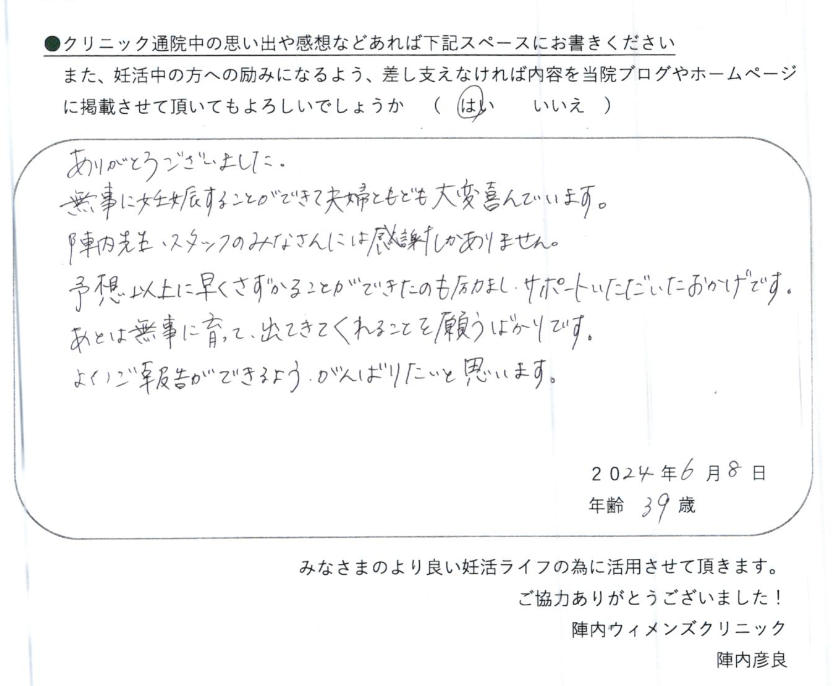 ●クリニック通院中の思い出や感想などあれば下記スペースにお書きください
また、妊活中の方への励みになるよう、差し支えなければ内容を当院ブログやホームページ
に掲載させて頂いてもよろしいでしょうか　（　はい　　いいえ　）
ありがとうございました。
無事に妊娠することができて夫婦ともども大変喜んでいます。
陣内先生、スタッフのみなさんには感謝しかありません。
予想以上に早くさずかることができたのも励まし、サポートいただいたおかげです。
あとは無事に育って、出てきてくれることを願うばかりです。
よいご報告ができるよう、がんばりたいと思います。
2024年6月8日
年齢　39歳
みなさまのより良い妊活ライフの為に活用させて頂きます。
ご協力ありがとうございました！
陣内ウィメンズクリニック
陣内彦良